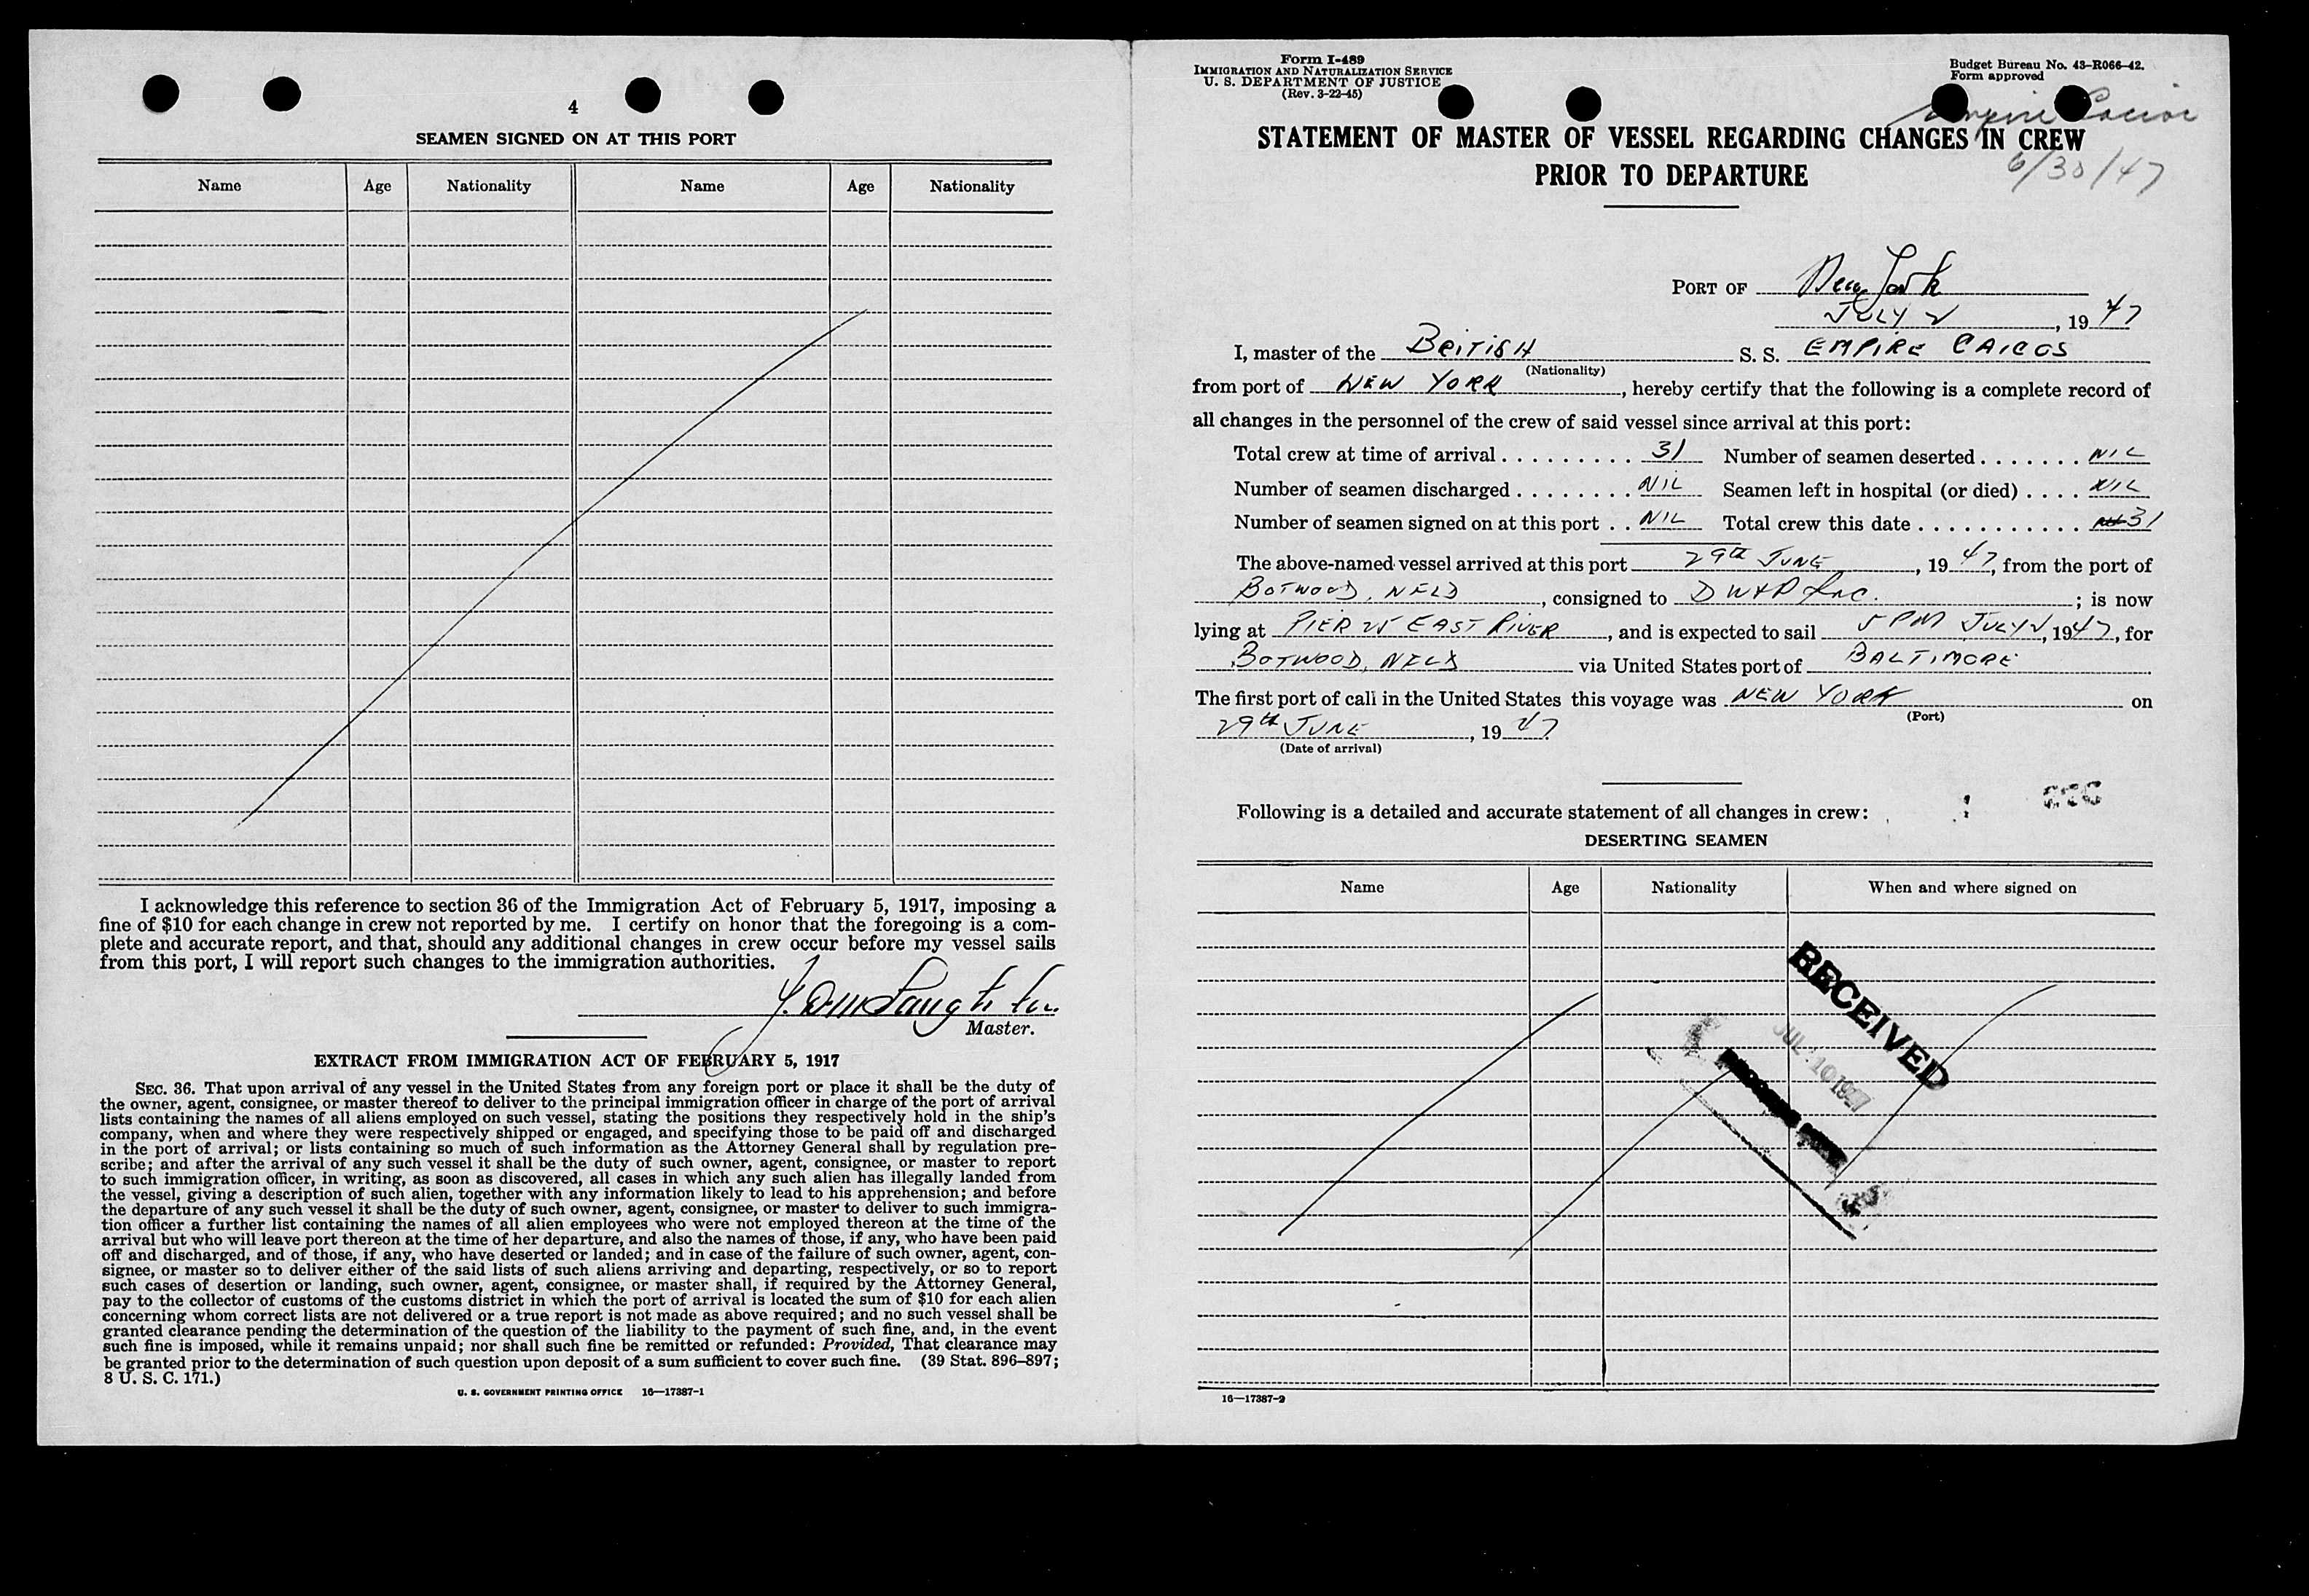 4
SEAMEN SIGNED ON AT THIS PORT
Name Age Nationality Name Age Nationality
I acknowledge this reference to section 36 of the Immigration Act of February 5, 1917, imposing a
fine of $10 for each change in crew not reported by me. I certify on honor that the foregoing is a com-
plete and accurate report, and that, should any additional changes in crew occur before my vessel sails
from this port, I will report such changes to the immigration authorities.
Master.
EXTRACT FROM IMMIGRATION ACT OF FEBRUARY 5, 1917
SEC. 36. That upon arrival of any vessel in the United States from any foreign port or place it shall be the duty of
the owner, agent, consignee, or master thereof to deliver to the principal immigration officer in charge of the port of arrival
lists containing the names of all aliens employed on such vessel, stating the positions they respectively hold in the ship's
company, when and where they were respectively shipped or engaged, and specifying those to be paid off and discharged
in the port of arrival; or lists containing so much of such information as the Attorney General shall by regulation pre-
scribe; and after the arrival of any such vessel it shall be the duty of such owner, agent, consignee, or master to report
to such immigration officer, in writing, as soon as discovered, all cases in which any such alien has illegally landed from
the vessel, giving a description of such alien, together with any information likely to lead to his apprehension; and before
the departure of any such vessel it shall be the duty of such owner, agent, consignee, or master to deliver to such immigra-
tion officer a further list containing the names of all alien employees who were not employed thereon at the time of the
arrival but who will leave port thereon at the time of her departure, and also the names of those, if any, who have been paid
off and discharged, and of those, if any, who have deserted or landed; and in case of the failure of such owner, agent, con-
signee, or master so to deliver either of the said lists of such aliens arriving and departing, respectively, or so to report
such cases of desertion or landing, such owner, agent, consignee, or master shall, if required by the Attorney General,
pay to the collector of customs of the customs district in which the port of arrival is located the sum of $10 for each alien
concerning whom correct lists are not delivered or a true report is not made as above required; and no such vessel shall be
granted clearance pending the determination of the question of the liability to the payment of such fine, and, in the event
such fine is imposed, while it remains unpaid; nor shall such fine be remitted or refunded: Provided, That clearance may
be granted prior to the determination of such question upon deposit of a sum sufficient to cover such fine. (39 Stat. 896–897;
8 U. S. C. 171.)
U. S. GOVERNMENT PRINTING OFFICE 16—17387-1
Form I-489
IMMIGRATION AND NATURALIZATION SERVICE
U. S. DEPARTMENT OF JUSTICE
(Rev. 3-22-45)
Budget Bureau No. 43-R066-42.
Form approved
STATEMENT OF MASTER OF VESSEL REGARDING CHANGES IN CREW
PRIOR TO DEPARTURE
6/30/47
PORT OF New York
JULY 2, 19 47
I, master of the British S. S. EMPIRE CAICOS
(Nationality)
from port of NEW YORK, hereby certify that the following is a complete record of
all changes in the personnel of the crew of said vessel since arrival at this port:
Total crew at time of arrival 31 Number of seamen deserted NIL
Number of seamen discharged NIL Seamen left in hospital (or died) NIL
Number of seamen signed on at this port NIL Total crew this date 31
The above-named vessel arrived at this port 29th JUNE, 19 47, from the port of
BOTWOOD, NFLD, consigned to ; is now
lying at PIER 25 EAST RIVER, and is expected to sail 5 PM JULY 2, 1947, for
BOTWOOD, NFLD via United States port of BALTIMORE
The first port of call in the United States this voyage was NEW YORK on
(Port)
29th JUNE, 19 47
(Date of arrival)
Following is a detailed and accurate statement of all changes in crew:
DESERTING SEAMEN
Name Age Nationality When and where signed on
RECEIVED
JUL 10 1947
16—17387-2